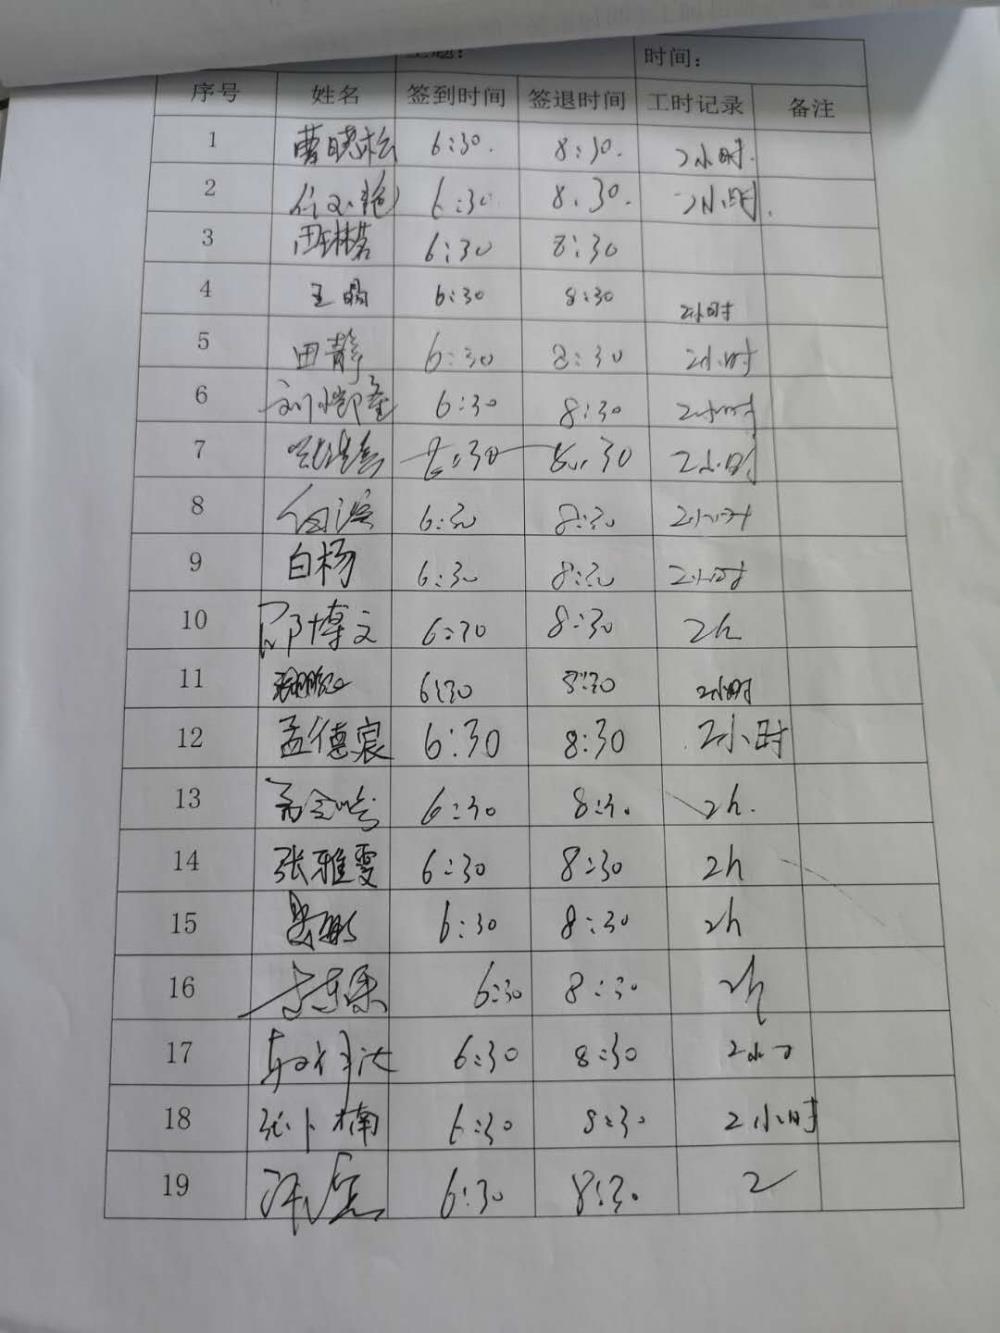 时间：
序号 姓名 签到时间 签退时间 工时记录 备注
1 曹晓松 6:30. 8:30. 2小时.
2 6:30 8:30. 2小时.
3 6:30 8:30
4 王晶 6:30 8:30 2小时
5 田静 6:30 8:30 2小时
6 6:30 8:30 2小时
7 2小时
8 6:30 8:30 2小时
9 白杨 6:30 8:30 2小时
10 邵博文 6:30 8:30 2h
11 6:30 8:30 2小时
12 孟德宸 6:30 8:30 2小时
13 6:30 8:30 2h.
14 张雅雯 6:30 8:30 2h
15 6:30 8:30 2h
16 6:30 8:30 2h
17 6:30 8:30 2小
18 张卜楠 6:30 8:30 2小时
19 6:30 8:30 2